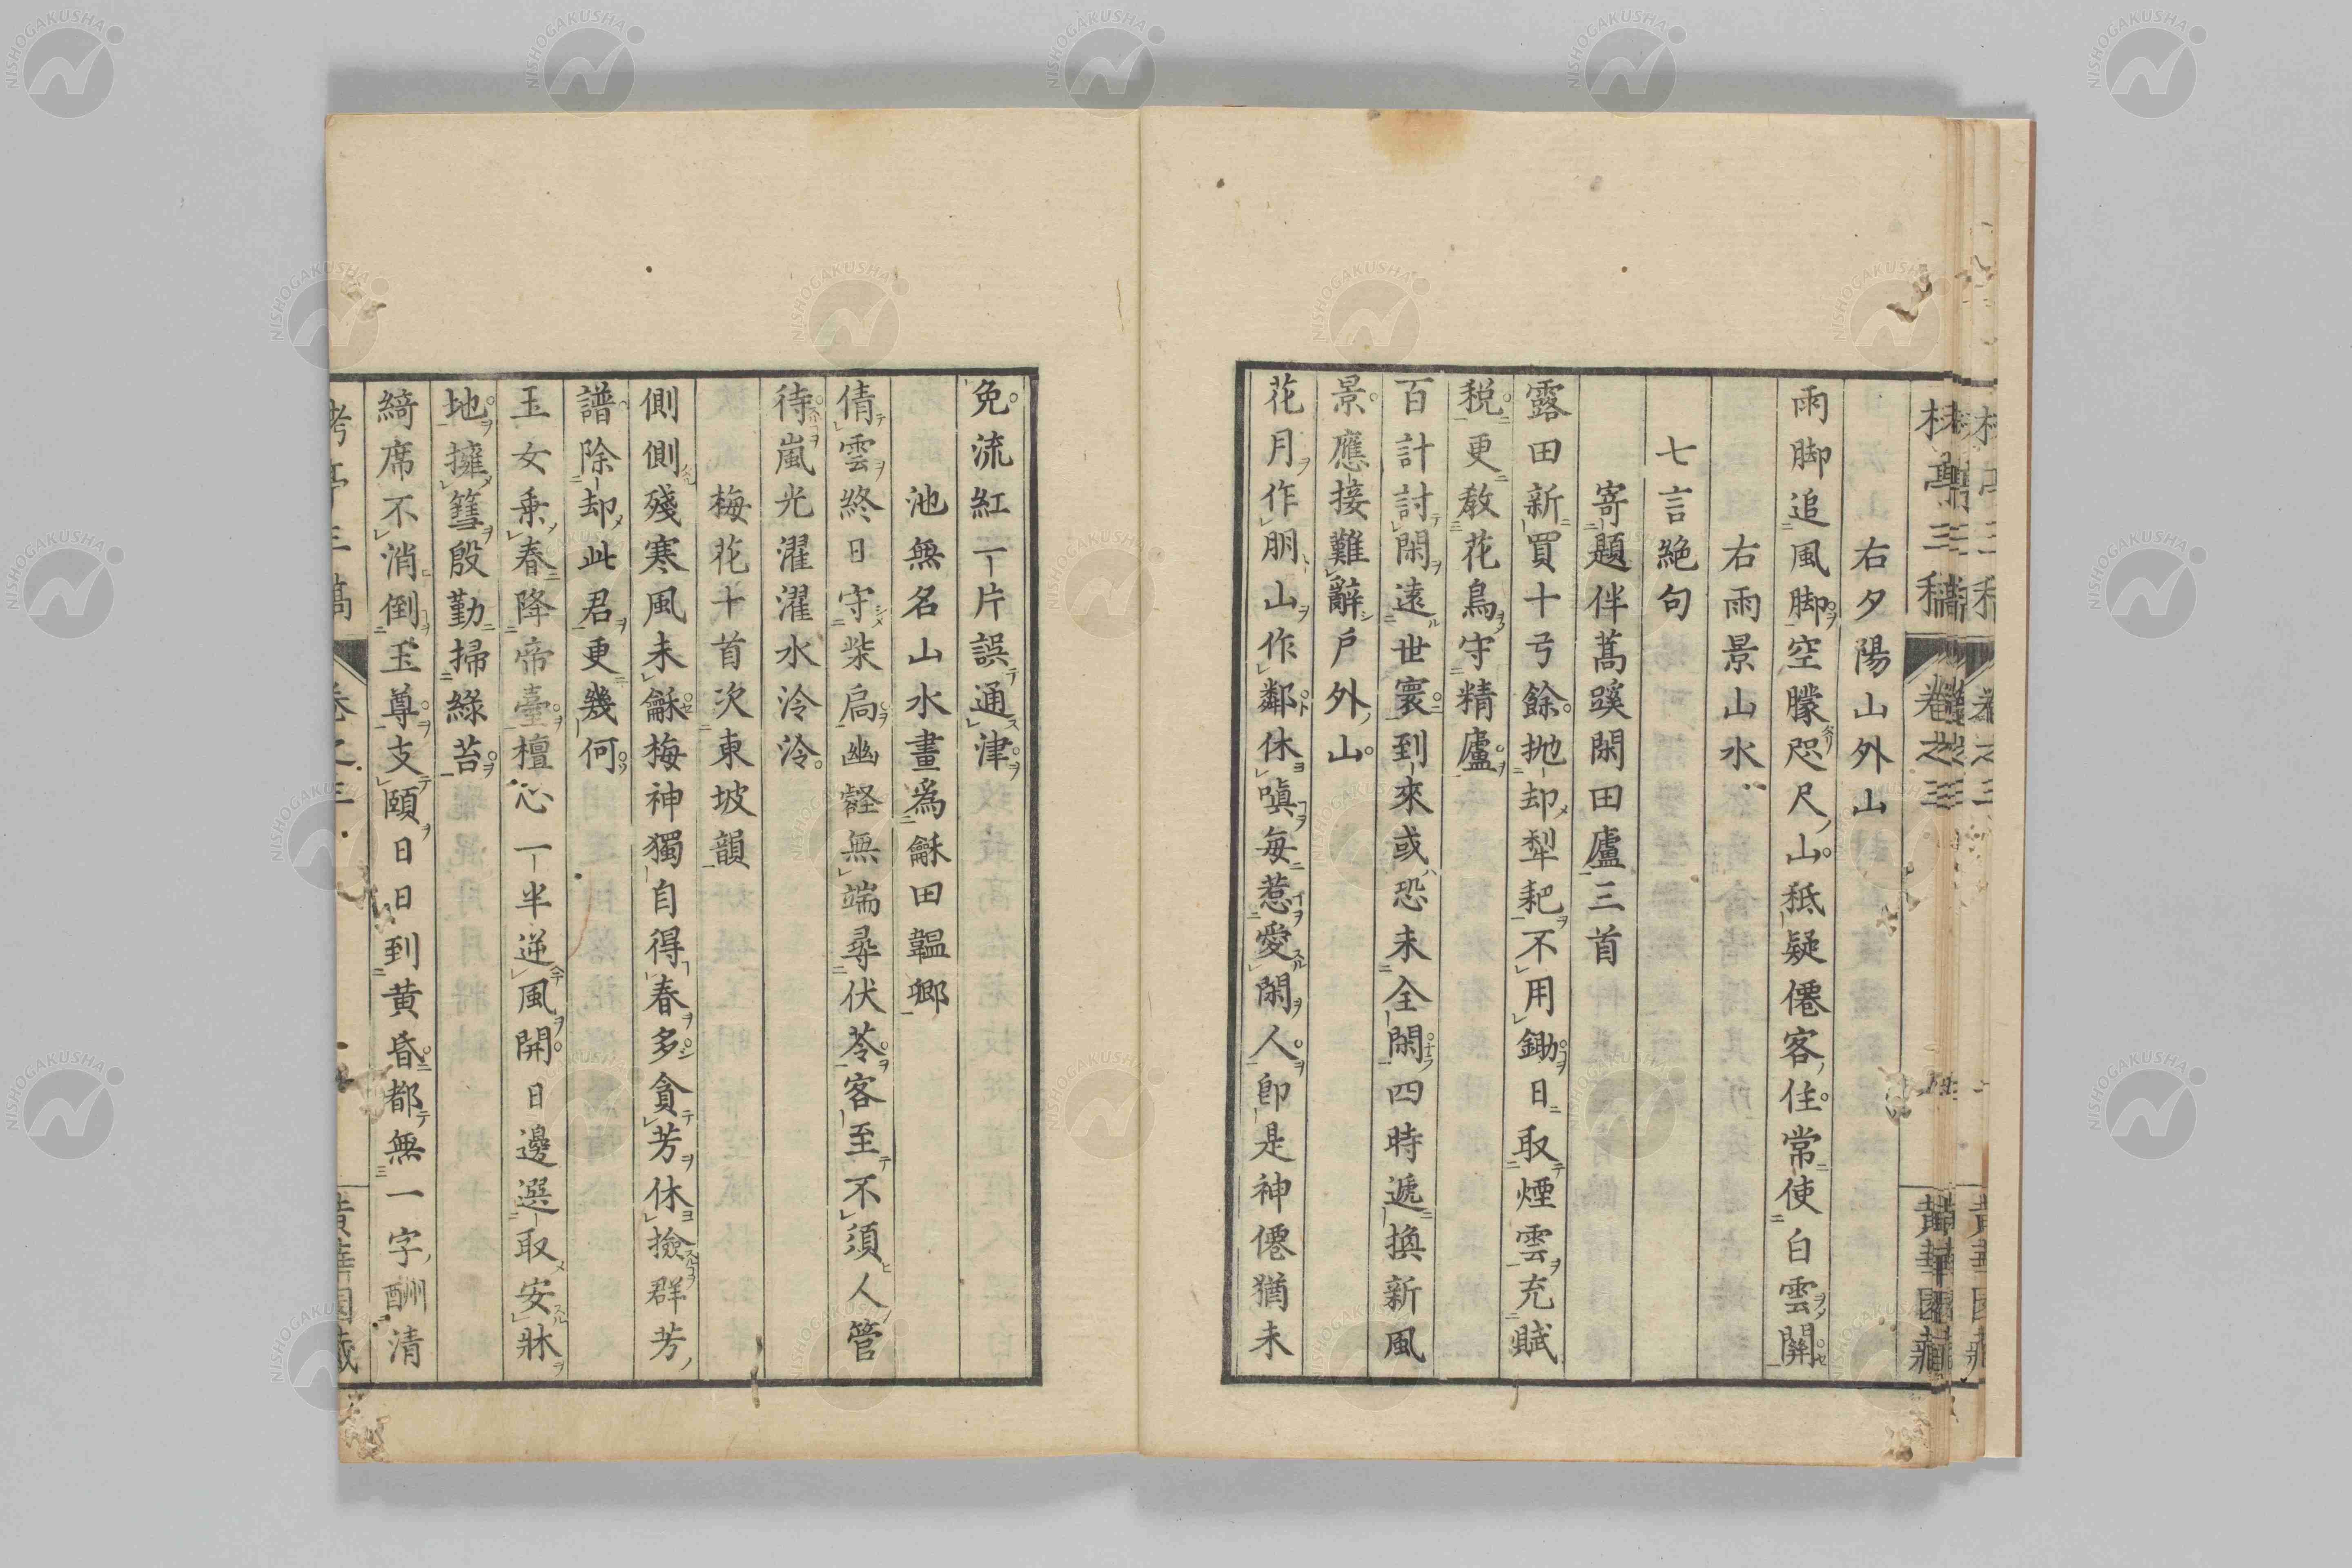 右夕陽山外山
雨脚追風脚空朦咫尺山秪疑僊客住常使白雲關
右雨景山水
七言絶句
寄題伴蒿蹊閑田廬三首
露田新買十弓餘抛却犁耙不用鋤日取煙雲充賦
税更教花鳥守精廬
百計討閑遠世寰到來或恐未全閑四時遞換新風
景應接難辭戶外山
花月作朋山作鄰休嗔每惹愛閑人即是神僊猶未
免流紅一片誤通津
池無名山水畫爲龢田韞卿
倩雲終日守柴扃幽壑無端尋伏苓客至不須人管
待嵐光濯濯水泠泠
梅花十首次東坡韻
側側殘寒風未龢梅神獨自得春多貪芳休撿群芳
譜除却此君更幾何
玉女乘春降帝臺檀心一半逆風開日邊選取安牀
地擁篲殷勤掃綠苔
綺席不消倒玉尊支頤日日到黄昏都無一字酬清
卷之三
NISHOGAKUSHA